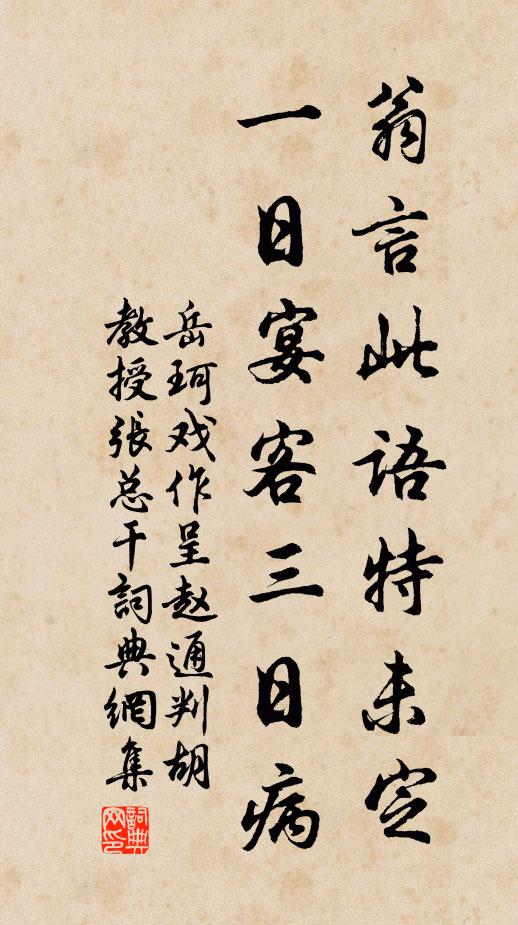 翁言此语特未定
一日宴客三日病
岳珂戏作呈赵通判胡
教授張总干詞典網集
詞典
网印